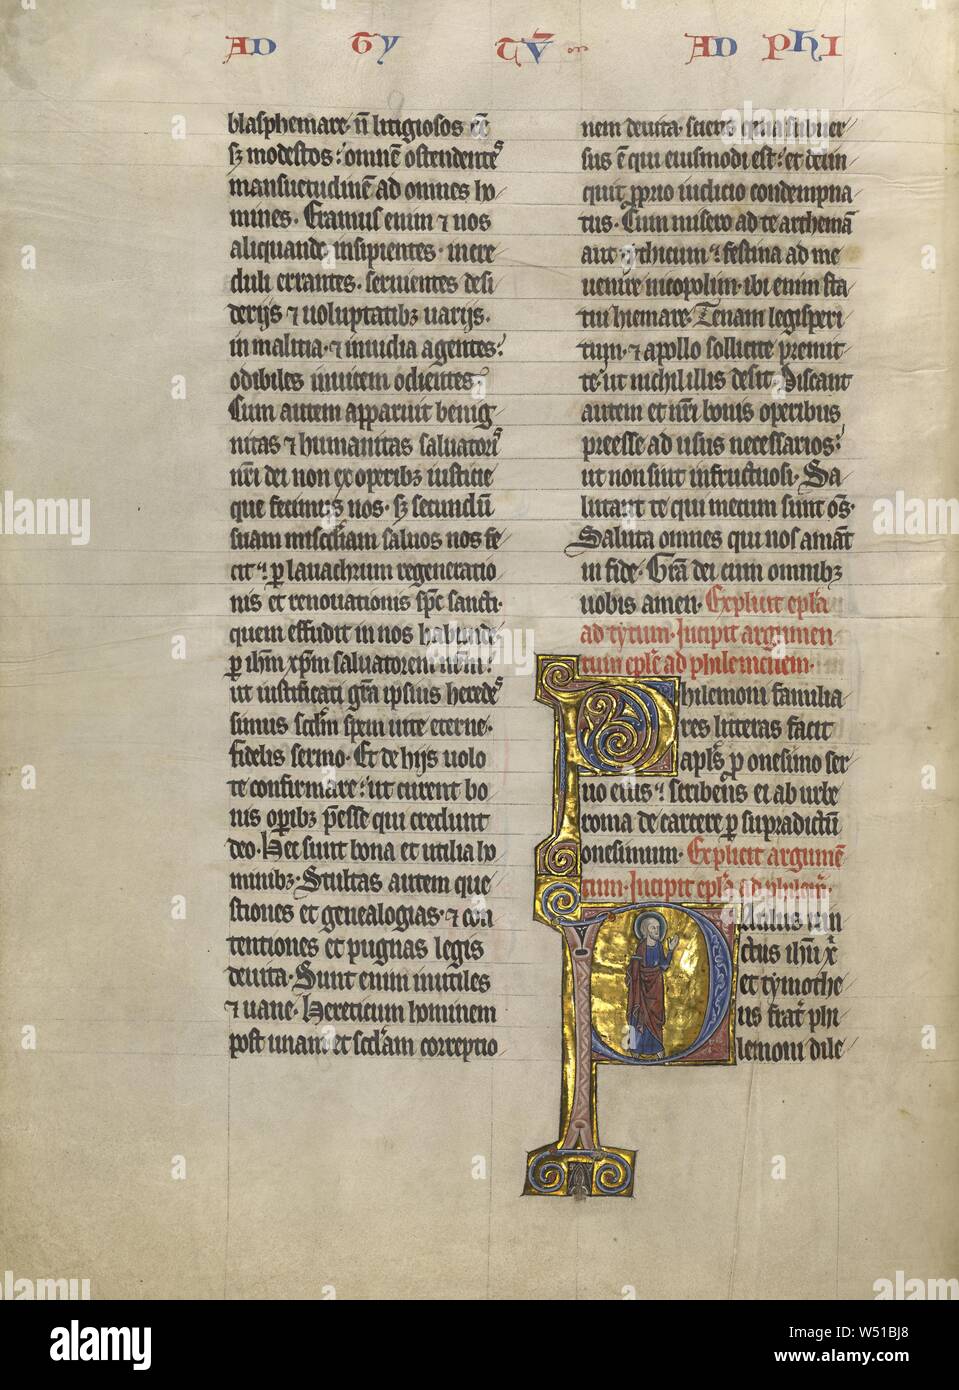 AD TY TUM AD PHI
blasphemare· nō litigiosos eē
sꝫ modestos: omnē ostendentesꝰ
mansuetudinē ad omnes ho
mines. Eramus enim ⁊ nos
aliquando insipientes· incre
duli errantes. seruientes desi
derijs ⁊ uoluptatibꝫ uarijs.
in malitia· ⁊ inuidia agentes:
odibiles inuicem odientes:
Cum autem apparuit benig
nitas ⁊ humanitas saluatoriꝰ
nr̄i dei non ex operibꝫ iusticie
que fecimus nos· sꝫ secundū
suam mis̄cdiam saluos nos fe
cit: ꝑ lauachrum regeneratio
nis et renouationis sp̄c sancti·
quem effudit in nos habunde
ꝑ ih̄m xp̄m saluatorem nr̄m:
ut iustificati gr̄a ipsius heredeꝰ
simus sc̄dm spem uite eterne·
fidelis sermo· Et de hijs uolo
te confirmare: ut curent bo
nis oꝑibꝫ p̄esse qui credunt
deo· Hec sunt bona et utilia ho
minibꝫ· Stultas autem que
stiones et genealogias· ⁊ con
tentiones et pugnas legis
deuita· Sunt enim inutiles
⁊ uane· Hereticum hominem
post unam et sc̄dam correptio
nem deuita· sciens quia subuer
sus ē qui eiusmodi est: et delin
quit ꝓprio iudicio condempna
tus· Cum misero ad te arthemā
aut tythicum: festina ad me
uenire nicopolim· ibi enim sta
tui hiemare· Zenam legisperi
tum· ⁊ apollo sollicite premit
te· ut nichil illis desit· Discant
autem et nr̄i bonis operibus
preesse ad usus necessarios:
ut non sint infructuosi· Sa
lutant te qui mecum sunt om̄s·
Saluta omnes qui nos amāt
in fide· Gr̄a dei cum omnibꝫ
uobis amen· Explicit epl̄a
ad tytum· Incipit argumen
tum epl̄e ad philemonem·
Philemoni familia
res litteras facit
apl̄s ꝓ onesimo ser
uo eius: scribens ei ab urbe
roma de carcere ꝑ supradictū
onesimum· Explicit argumē
tum· Incipit epl̄a ad philem̄·
PAulus uin
ctus ih̄u x̄
et tymothe
us frat̄ phi
lemoni dile
alamy
alamy stock photo
a
W51BJ8
www.alamy.com